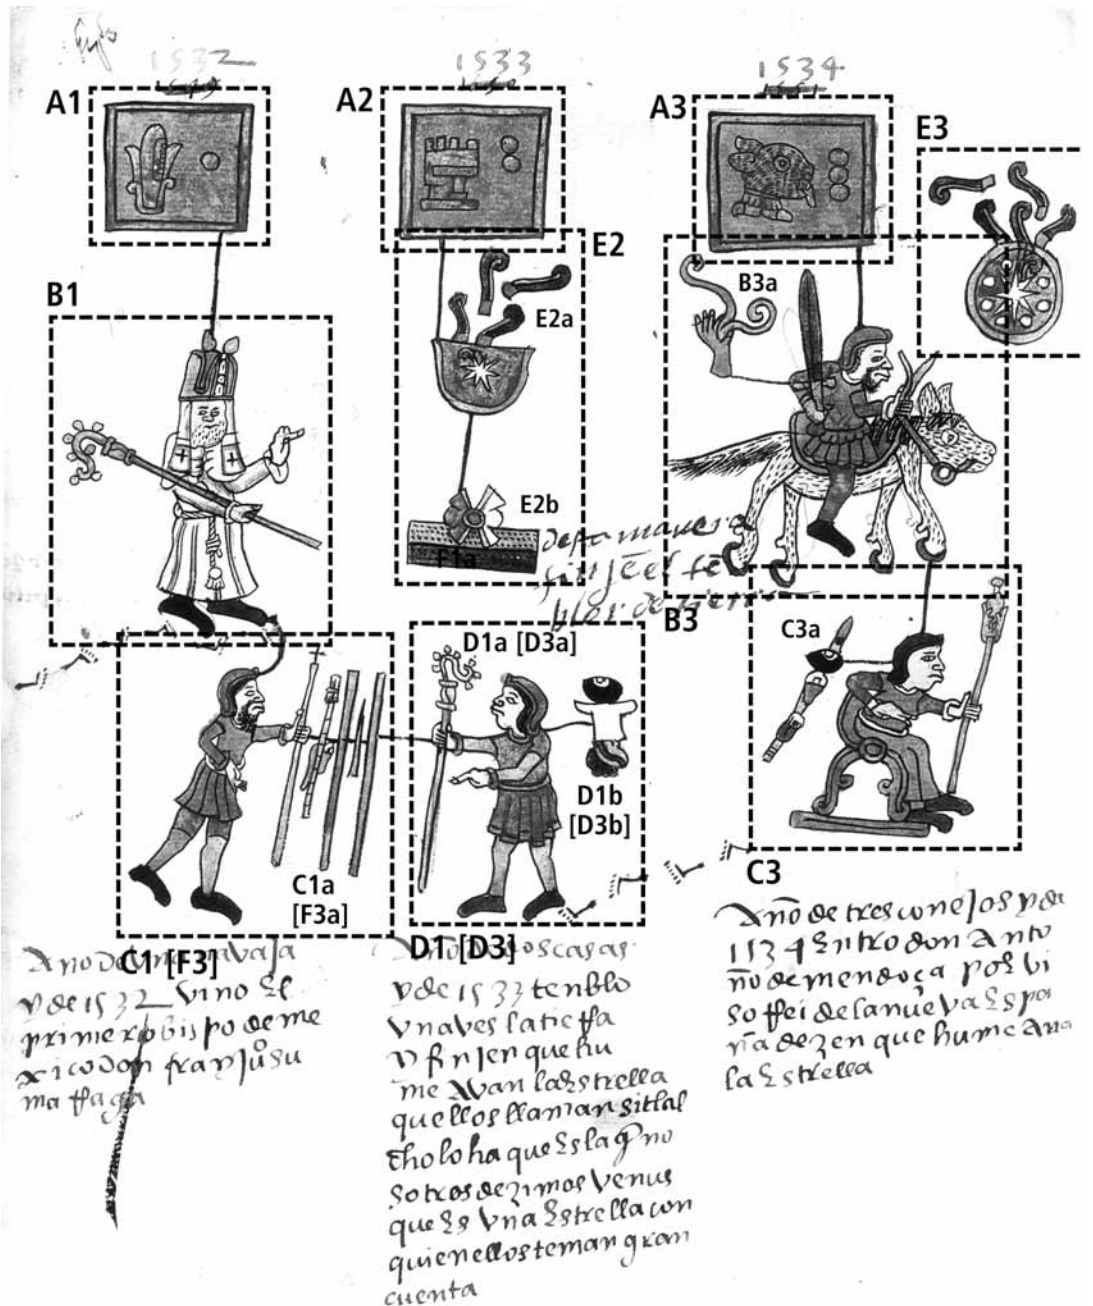 1532
1533
1534
A1
A2
A3
E3
B1
E2
E2a
B3a
E2b
F1a
desta manera
temblor de tierra
B3
D1a [D3a]
C3a
D1b
[D3b]
C1a
[F3a]
C3
C1 [F3]
D1 [D3]
Año de una navaja
y de 1532 vino el
primer obispo de me
xico don fray Juº su
ma rraga
Año de dos casas
y de 1533 tenblo
vna ves la tierra
y finjen que hu
me avan la estrella
quellos llaman sitlal
choloha que es la q̃ no
sotros dezimos venus
que es vna estrella con
quien ellos tenian gran
cuenta
Año de tres conejos y de
1534 entro don Anto
ño de mendoça por vi
so rrei de la nueva espa
ña dezen que humeava
la estrella